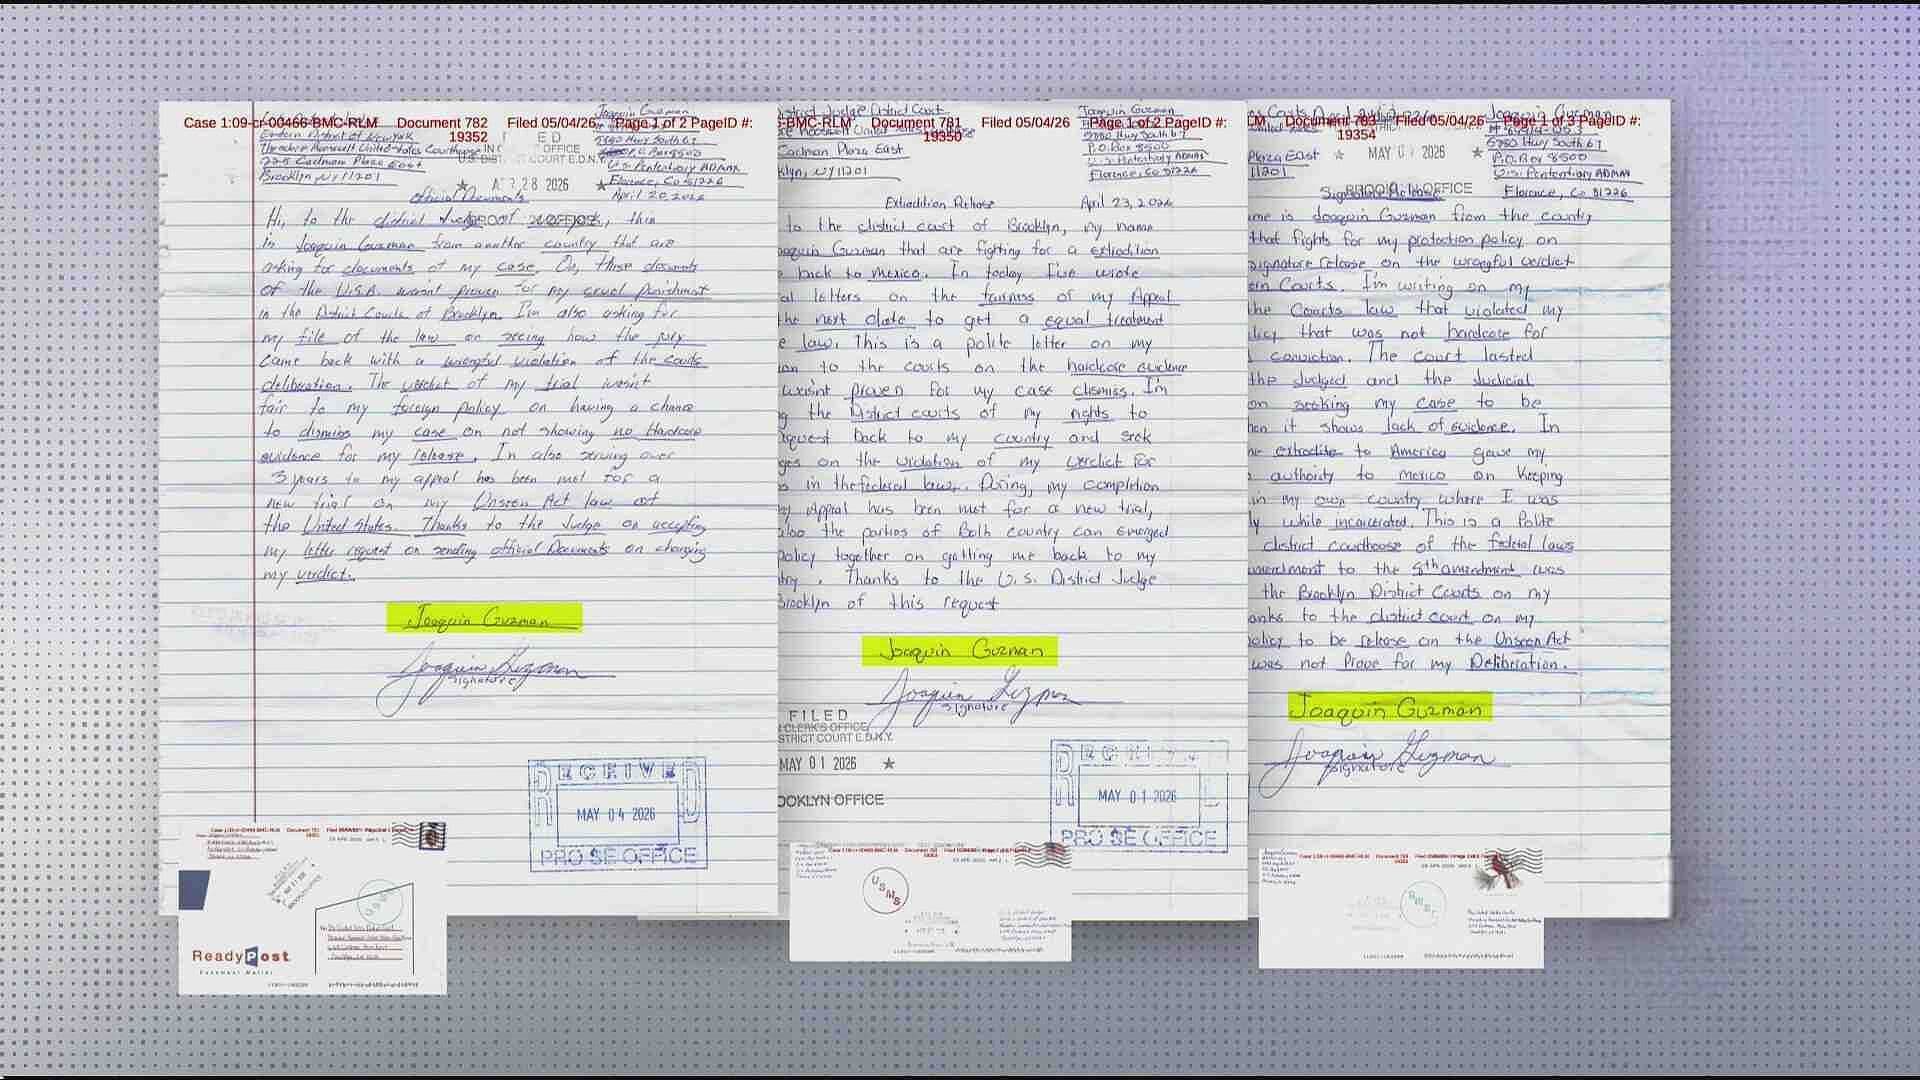 Case 1:09-cr-00466-BMC-RLM Document 782 Filed 05/04/26 Page 1 of 2 PageID #:
19352
Joaquin Guzman
Eastern District of New York
Theodore Roosevelt United States Courthouse
225 Cadman Plaza East
Brooklyn NY 11201
5880 Hwy South 67
U.S. Penitentiary ADMAX
Florence, Co 81226
April 20, 2026
U.S. DISTRICT COURT E.D.N.Y.
28 2026
Official Documents
Hi, to the district Judge of, this
in Joaquin Guzman from another country that are
asking for documents of my case. On, these documents
of the U.S.A. wasn't proven for my cruel punishment
in the District Courts of Brooklyn. I'm also asking for
my file of the law on seeing how the jury
came back with a wrongful violation of the courts
deliberation. The verdict of my trial wasn't
fair to my foreign policy on having a chance
to dismiss my case on not showing no Hardcore
evidence for my release. In also serving over
3 years to my appeal has been met for a
new trial on my Unseen Act law of
the United States. Thanks to the Judge on accepting
my letter request on sending official Documents on changing
my verdict.
Joaquin Guzman
Joaquin Guzman
signature
RECEIVED
MAY 04 2026
PRO SE OFFICE
ReadyPost
-BMC-RLM Document 781 Filed 05/04/26 Page 1 of 2 PageID #:
19350
District Judge District Court
Cadman Plaza East
klyn, NY 11201
Joaquin Guzman
5880 Hwy South 67
P.O. Box 8500
U.S. Penitentiary ADMAX
Florence, Co 81226
Extradition Release April 23, 2026
to the district court of Brooklyn, my name
Joaquin Guzman that are fighting for a extradition
back to Mexico. In today I've wrote
al letters on the fairness of my Appeal
the next date to get a equal treatment
e law. This is a polite letter on my
on to the courts on the hardcore evidence
wasn't proven for my case dismiss. I'm
g the District courts of my rights to
request back to my country and seek
ges on the violation of my verdict for
s in the federal law. During, my completion
my Appeal has been met for a new trial,
also the parties of Both country can emerged
policy together on getting me back to my
try. Thanks to the U.S. District Judge
Brooklyn of this request
Joaquin Guzman
Joaquin Guzman
signature
FILED
CLERK'S OFFICE
DISTRICT COURT E.D.N.Y.
MAY 01 2026
OOKLYN OFFICE
MAY 01 2026
PRO SE OFFICE
USMS
LM Document 783 Filed 05/04/26 Page 1 of 3 PageID #:
19354
Joaquin Guzman
Plaza East
11201
MAY 01 2026
BROOKLYN OFFICE
5880 Hwy South 67
P.O. Box 8500
U.S. Penitentiary ADMAX
Florence, Co 81226
Signature Release
me is Joaquin Guzman from the country
that fights for my protection policy on
signature release on the wrongful verdict
ern Courts. I'm writing on my
the Courts law that violated my
licy that was not hardcore for
conviction. The court lasted
the Judged and the Judicial
on seeking my case to be
hen it shows lack of evidence. In
he extradite to America gave my
authority to mexico on Keeping
in my own country where I was
ly while incarcerated. This is a Polite
district courthouse of the federal laws
amendment to the 8th amendment was
the Brooklyn District Courts on my
anks to the district court on my
olicy to be release on the Unseen Act
was not Prove for my Deliberation.
Joaquin Guzman
Joaquin Guzman
signature